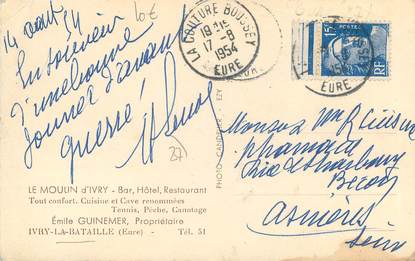 14 août 54
10€
En souvenir
d'une bonne
journée d'avant
guerre!
27
LA COUTURE BOUSSEY
17-8
1954
EURE
15F
POSTES
RF
EURE
PHOTO CANDELIER - EZY
LE MOULIN d'IVRY - Bar, Hôtel, Restaurant
Tout confort. Cuisine et Cave renommées
Tennis, Pêche, Canotage
Émile GUINEMER, Propriétaire
IVRY-LA-BATAILLE (Eure) - Tél. 51
Monsieur
pharmacie
Rue de Strasbourg
Becon
Asnières
Seine